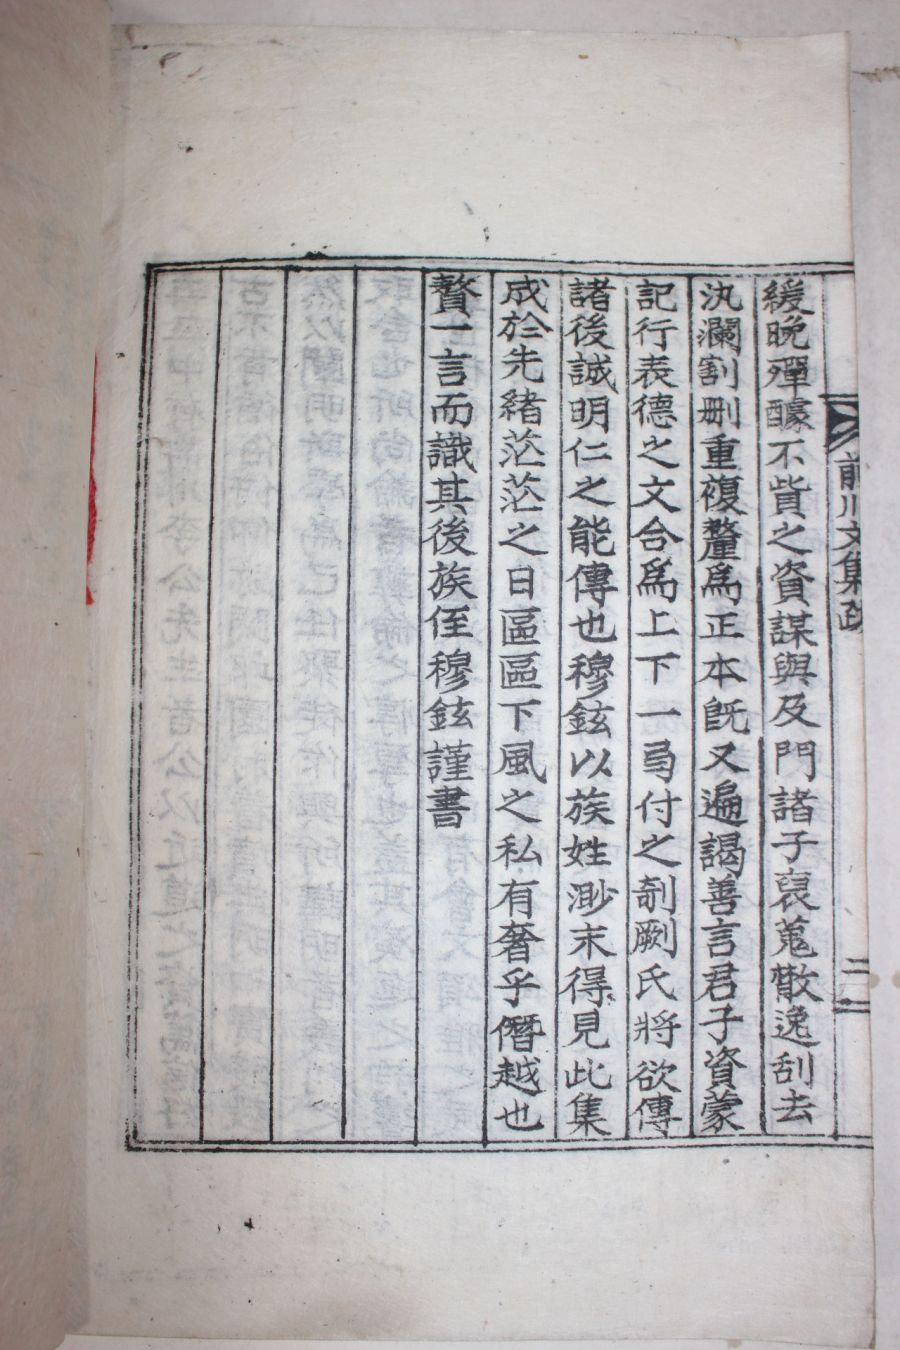 前川文集跋
二
緩晩殫醵不貲之資謀與及門諸子裒蒐散逸刮去
汍瀾割刪重複釐爲正本旣又遍謁善言君子資蒙
記行表德之文合爲上下一弓付之剞劂氏將欲傳
諸後誠明仁之能傳也穆鉉以族姓渺末得見此集
成於先緖茫茫之日區區下風之私有奢乎僭越也
贅一言而識其後族侄穆鉉謹書